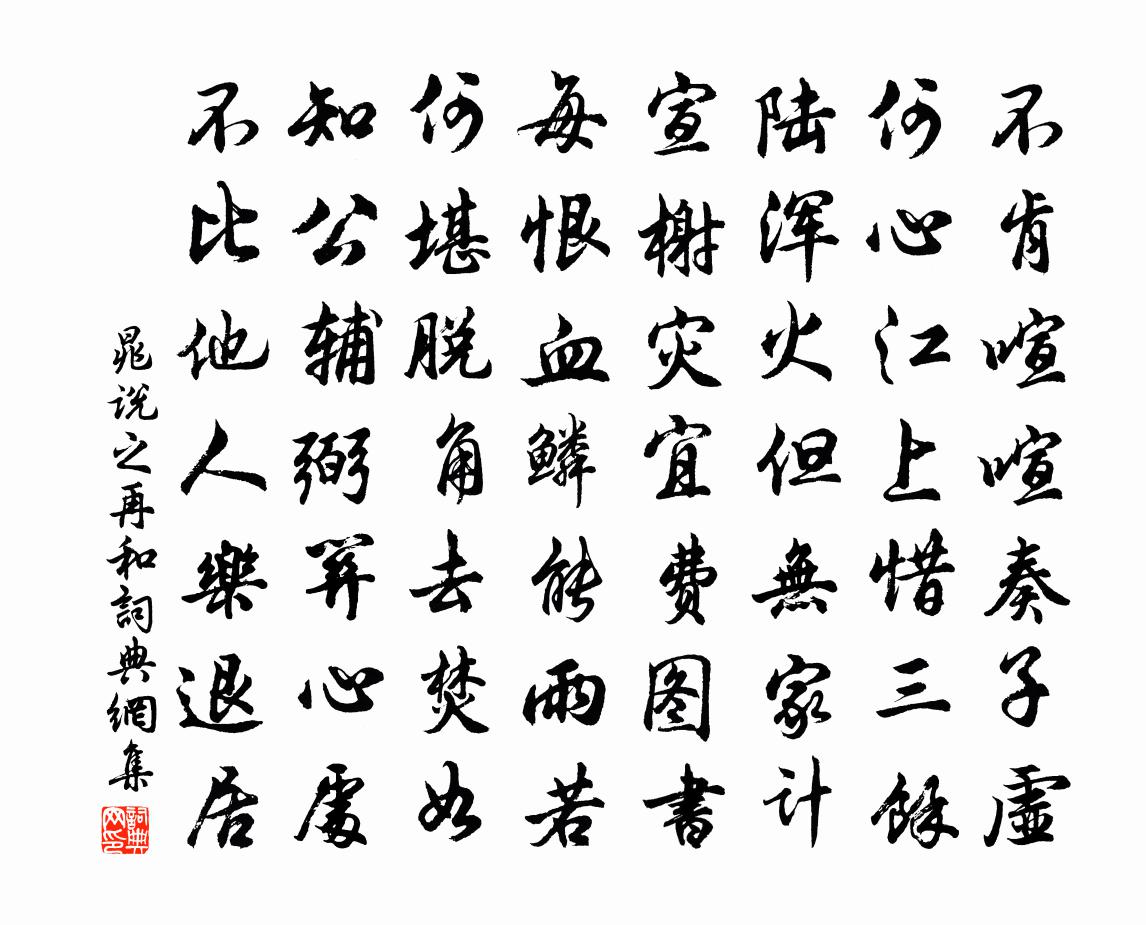 不肯喧喧奏子虚
何心江上惜三餘
陆浑火但無家计
宣榭灾宜费图書
每恨血鳞能雨若
何堪脱角去焚如
知公辅弼筭心處
不比他人樂退居
晁说之再和詞典網集
詞典网印